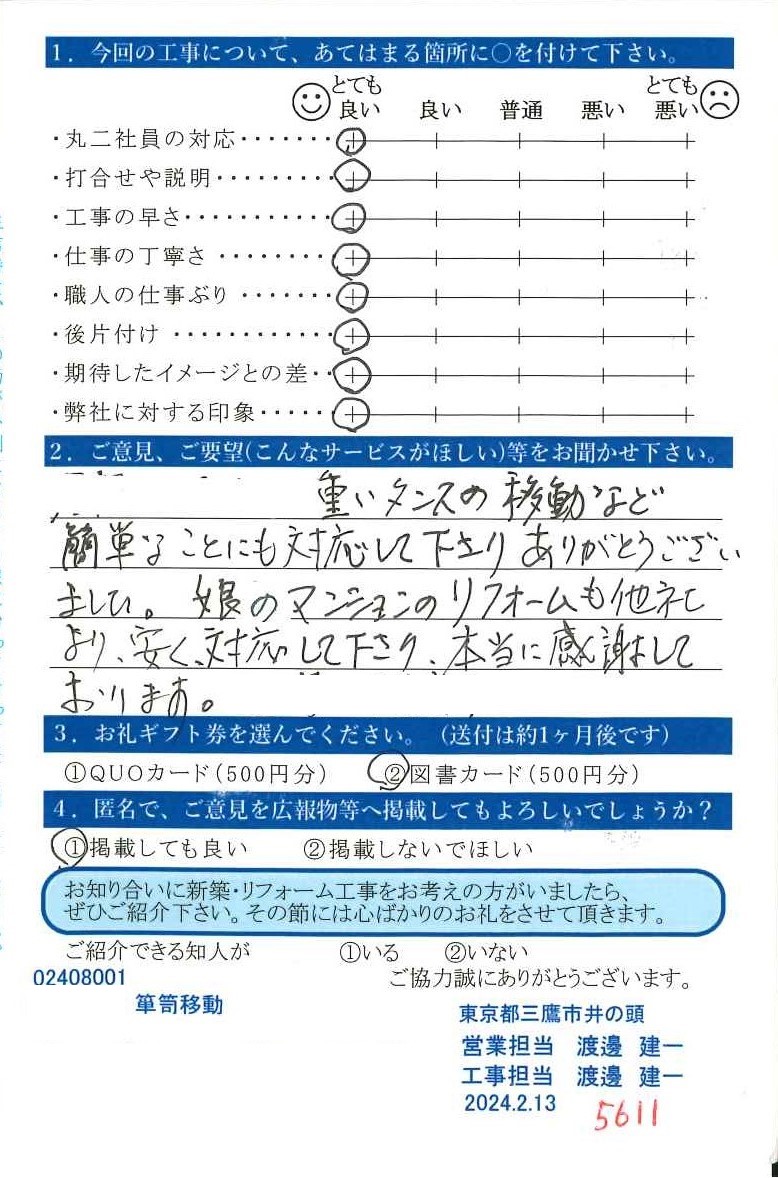 1．今回の工事について、あてはまる箇所に○を付けて下さい。
とても良い 良い 普通 悪い とても悪い
・丸二社員の対応・・・・・・・
・打合せや説明・・・・・・・・・
・工事の早さ・・・・・・・・・・・
・仕事の丁寧さ・・・・・・・・
・職人の仕事ぶり・・・・・・・
・後片付け・・・・・・・・・・・・
・期待したイメージとの差・・
・弊社に対する印象・・・・・
2．ご意見、ご要望(こんなサービスがほしい)等をお聞かせ下さい。
重いタンスの移動など
簡単なことにも対応して下さり ありがとうござい
ました。娘のマンションのリフォームも他社
より、安く、対応して下さり、本当に感謝して
おります。
3．お礼ギフト券を選んでください。（送付は約1ヶ月後です）
①QUOカード（500円分） ②図書カード（500円分）
4．匿名で、ご意見を広報物等へ掲載してもよろしいでしょうか？
①掲載しても良い ②掲載しないでほしい
お知り合いに新築・リフォーム工事をお考えの方がいましたら、
ぜひご紹介下さい。その節には心ばかりのお礼をさせて頂きます。
ご紹介できる知人が ①いる ②いない
02408001
ご協力誠にありがとうございます。
箪笥移動
東京都三鷹市井の頭
営業担当 渡邊 建一
工事担当 渡邊 建一
2024.2.13
5611